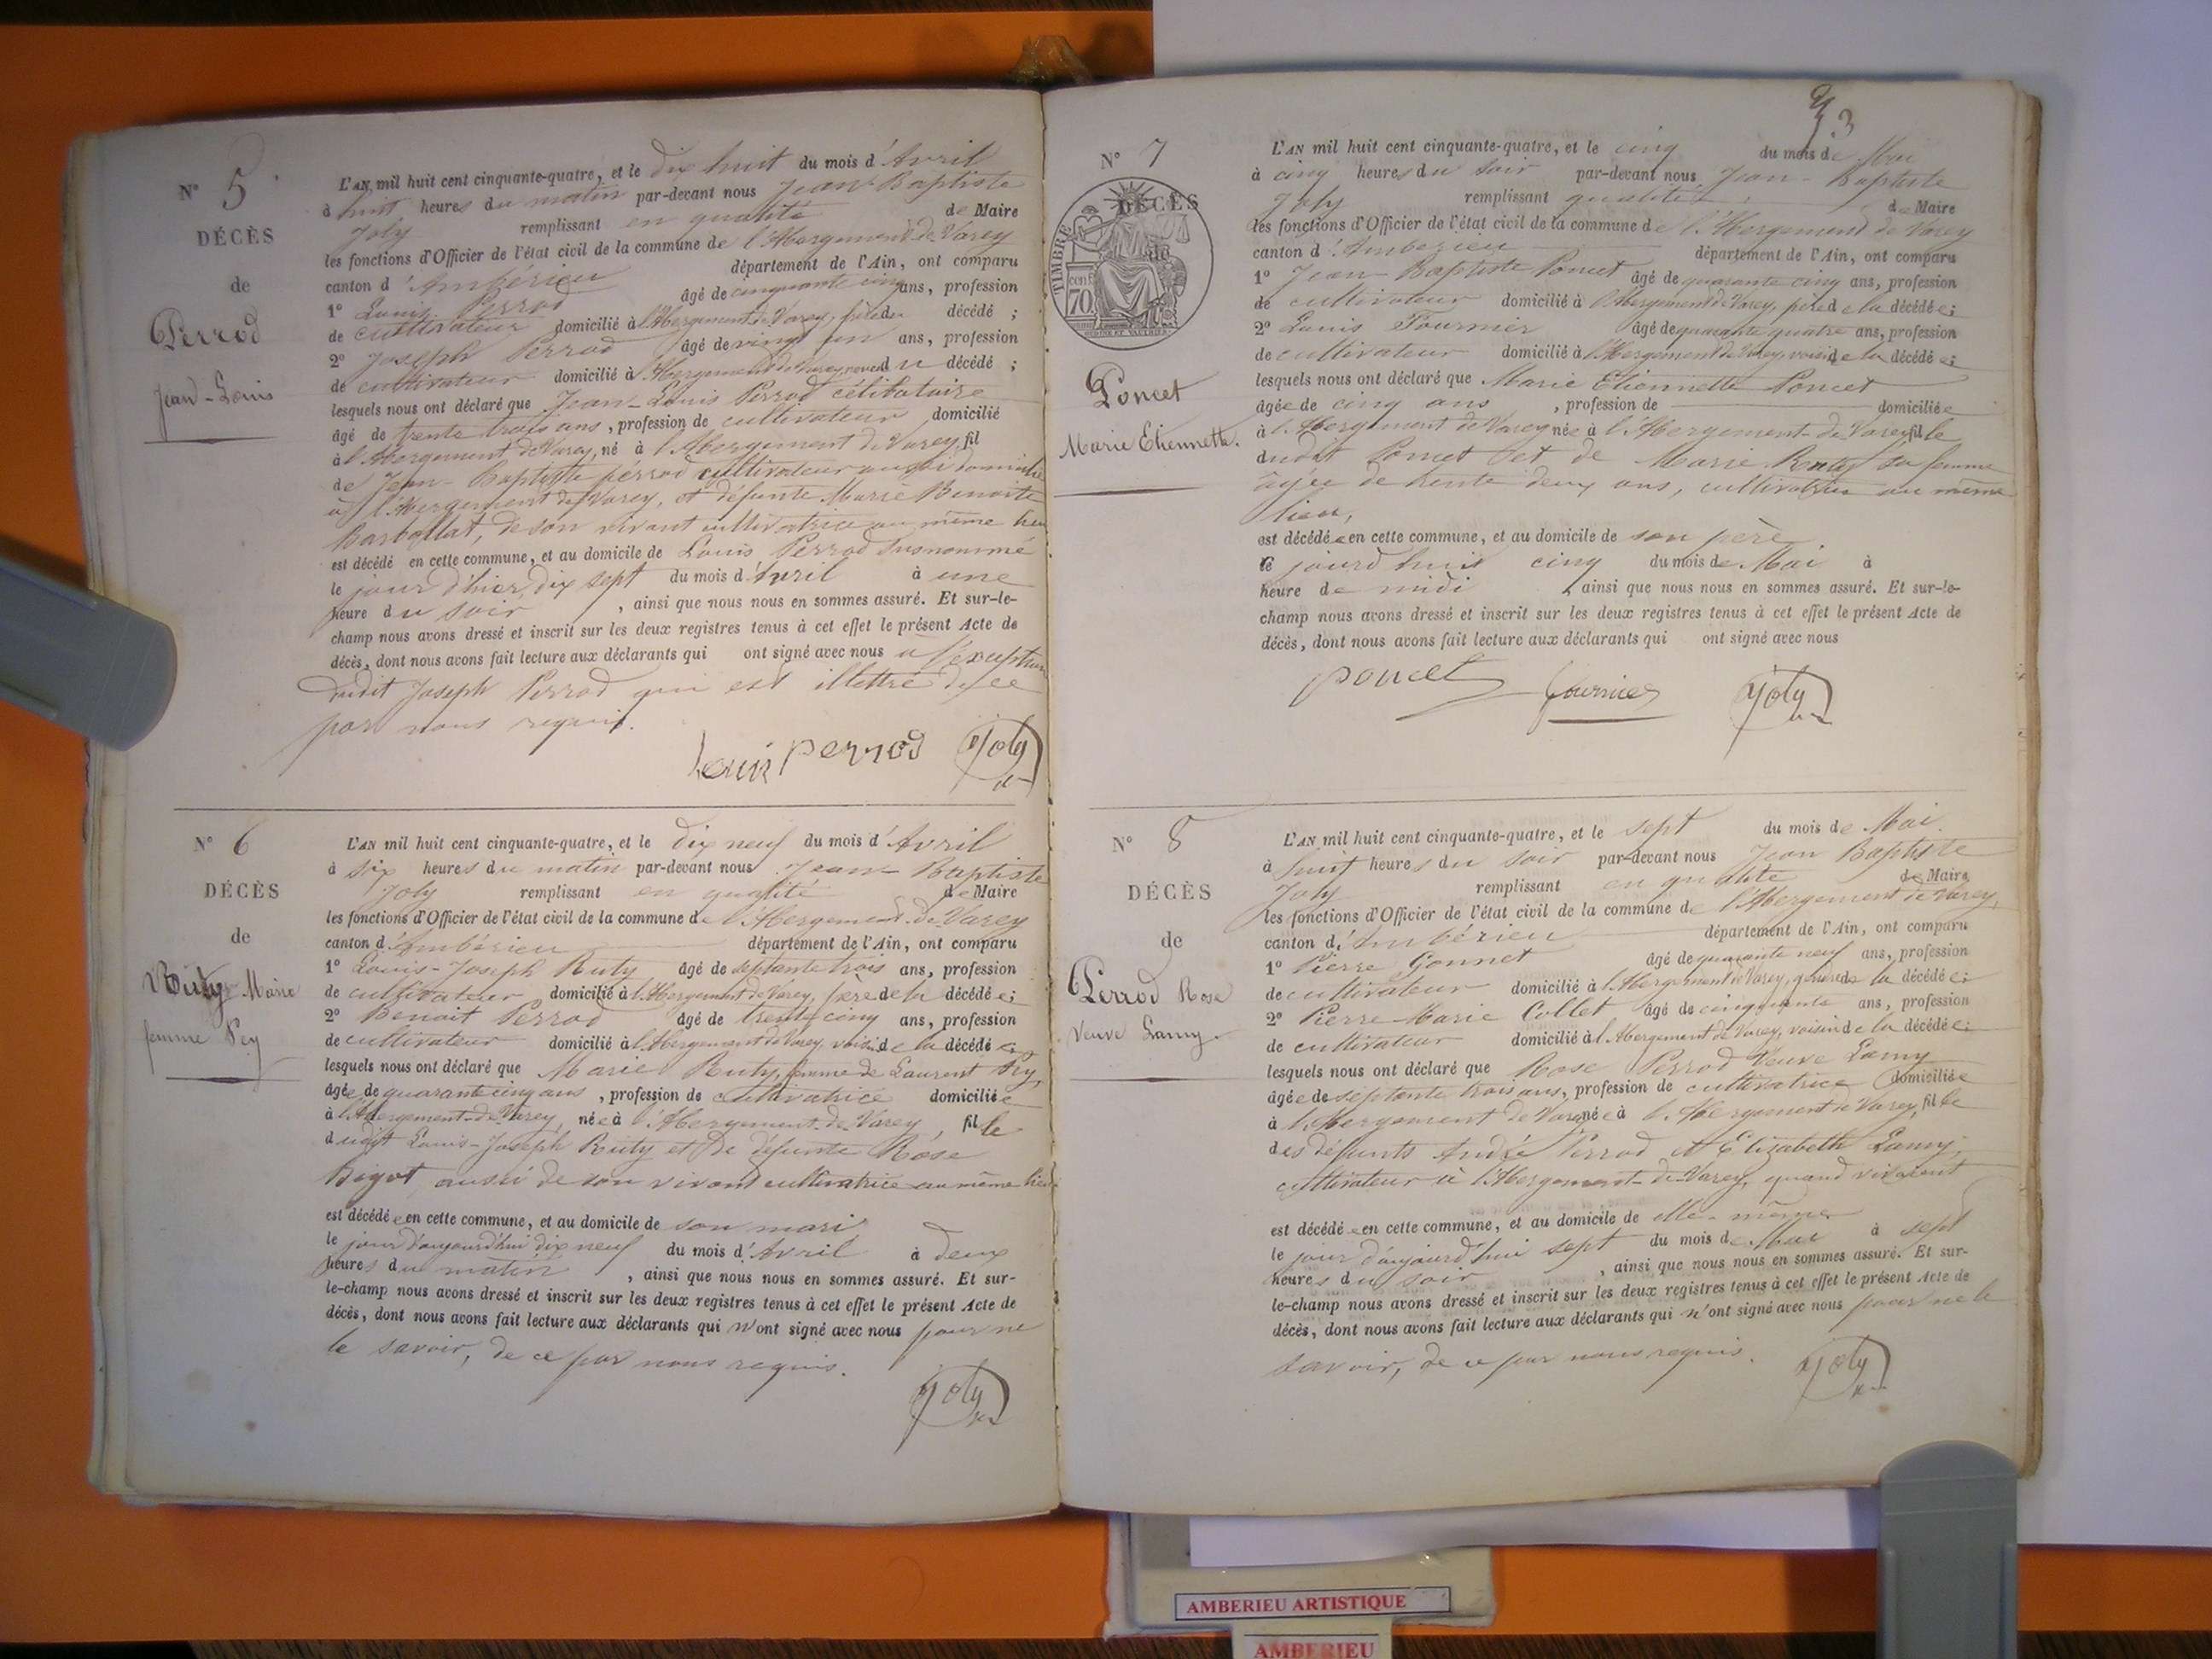 N° 5
DÉCÈS
de
Perrod
Jean-Louis
L'AN mil huit cent cinquante-quatre, et le dix huit du mois d'Avril
à huit heures du matin par-devant nous Jean-Baptiste
Joly remplissant en qualité de Maire
les fonctions d'Officier de l'état civil de la commune de l'Abergement de Varey
canton d'Ambérieu département de l'Ain, ont comparu
1° Louis Perrod âgé de cinquante cinq ans, profession
de cultivateur domicilié à l'Abergement de Varey, du décédé ;
2° Joseph Perrod âgé de vingt un ans, profession
de cultivateur domicilié à l'Abergement de Varey, du décédé ;
lesquels nous ont déclaré que Jean-Louis Perrod célibataire
âgé de trente trois ans, profession de cultivateur domicilié
à l'Abergement de Varey, né à l'Abergement de Varey, fil
de Jean-Baptiste perrod cultivateur aussi domicilié
à l'Abergement de Varey, et défunte Marie Benoite
Barbollat, de son vivant cultivatrice au même lieu
est décédé en cette commune, et au domicile de Louis Perrod susnommé
le jour d'hier, dix sept du mois d'Avril à une
heure du soir, ainsi que nous nous en sommes assuré. Et sur-le-
champ nous avons dressé et inscrit sur les deux registres tenus à cet effet le présent Acte de
décès, dont nous avons fait lecture aux déclarants qui ont signé avec nous à l'exception
dudit Joseph Perrod qui est illettré de ce
par nous requis.
Louis perrod Joly
N° 6
DÉCÈS
de
Ruty Marie
femme Pey
L'AN mil huit cent cinquante-quatre, et le dix neuf du mois d'Avril
à six heures du matin par-devant nous Jean-Baptiste
Joly remplissant en qualité de Maire
les fonctions d'Officier de l'état civil de la commune de l'Abergement de Varey
canton d'Ambérieu département de l'Ain, ont comparu
1° Louis-Joseph Ruty âgé de septante trois ans, profession
de cultivateur domicilié à l'Abergement de Varey, père de la décédée ;
2° Benoit Perrod âgé de trente cinq ans, profession
de cultivateur domicilié à l'Abergement de Varey, voisin de la décédée ;
lesquels nous ont déclaré que Marie Ruty, femme de Laurent Pey,
âgée de quarante cinq ans, profession de cultivatrice domiciliée
à l'Abergement-de-Varey, née à l'Abergement-de-Varey, fille
dudit Louis-Joseph Ruty et de défunte Rose
Bigot, aussi de son vivant cultivatrice au même lieu
est décédée en cette commune, et au domicile de son mari
le jour d'aujourd'hui dix neuf du mois d'Avril à deux
heures du matin, ainsi que nous nous en sommes assuré. Et sur-
le-champ nous avons dressé et inscrit sur les deux registres tenus à cet effet le présent Acte de
décès, dont nous avons fait lecture aux déclarants qui n'ont signé avec nous pour ne
le savoir, de ce par nous requis.
Joly
3
N° 7
DÉCÈS
de
TIMBRE
70
Poncet
Marie Etiennette.
L'AN mil huit cent cinquante-quatre, et le cinq du mois de Mai
à cinq heures du soir par-devant nous Jean-Baptiste
Joly remplissant qualité de Maire
les fonctions d'Officier de l'état civil de la commune de l'Abergement de Varey
canton d'Ambérieu département de l'Ain, ont comparu
1° Jean-Baptiste Poncet âgé de quarante cinq ans, profession
de cultivateur domicilié à l'Abergement de Varey, père de la décédée ;
2° Louis Fournier âgé de quarante quatre ans, profession
de cultivateur domicilié à l'Abergement de Varey, voisin de la décédée ;
lesquels nous ont déclaré que Marie Etiennette Poncet
âgée de cinq ans, profession de domiciliée
à l'Abergement de Varey née à l'Abergement-de-Varey fille
dudit Poncet et de Marie Ruty sa femme
âgée de trente deux ans, cultivatrice au même
lieu,
est décédée en cette commune, et au domicile de son père
ce jourd'hui cinq du mois de Mai à
heure de midi, ainsi que nous nous en sommes assuré. Et sur-le-
champ nous avons dressé et inscrit sur les deux registres tenus à cet effet le présent Acte de
décès, dont nous avons fait lecture aux déclarants qui ont signé avec nous
poncet fournier Joly
N° 8
DÉCÈS
de
Perrod Rose
Veuve Lamy.
L'AN mil huit cent cinquante-quatre, et le sept du mois de Mai
à huit heures du soir par-devant nous Jean Baptiste
Joly remplissant en qualité de Maire
les fonctions d'Officier de l'état civil de la commune de l'Abergement de Varey,
canton d'Ambérieu département de l'Ain, ont comparu
1° Pierre Gonnet âgé de quarante neuf ans, profession
de cultivateur domicilié à l'Abergement de Varey, gendre de la décédée ;
2° Pierre-Marie Collet âgé de cinquante ans, profession
de cultivateur domicilié à l'Abergement de Varey, voisin de la décédée ;
lesquels nous ont déclaré que Rose Perrod Veuve Lamy
âgée de septante trois ans, profession de cultivatrice domiciliée
à l'Abergement de Varey née à l'Abergement de Varey, fille
des défunts André Perrod et Elizabeth Lamy,
cultivateur à l'Abergement-de-Varey, quand vivaient
est décédée en cette commune, et au domicile de elle-même
le jour d'aujourd'hui sept du mois de Mai à sept
heures du soir, ainsi que nous nous en sommes assuré. Et sur-
le-champ nous avons dressé et inscrit sur les deux registres tenus à cet effet le présent Acte de
décès, dont nous avons fait lecture aux déclarants qui n'ont signé avec nous pour ne le
savoir, de ce par nous requis.
Joly
AMBERIEU ARTISTIQUE
AMBERIEU